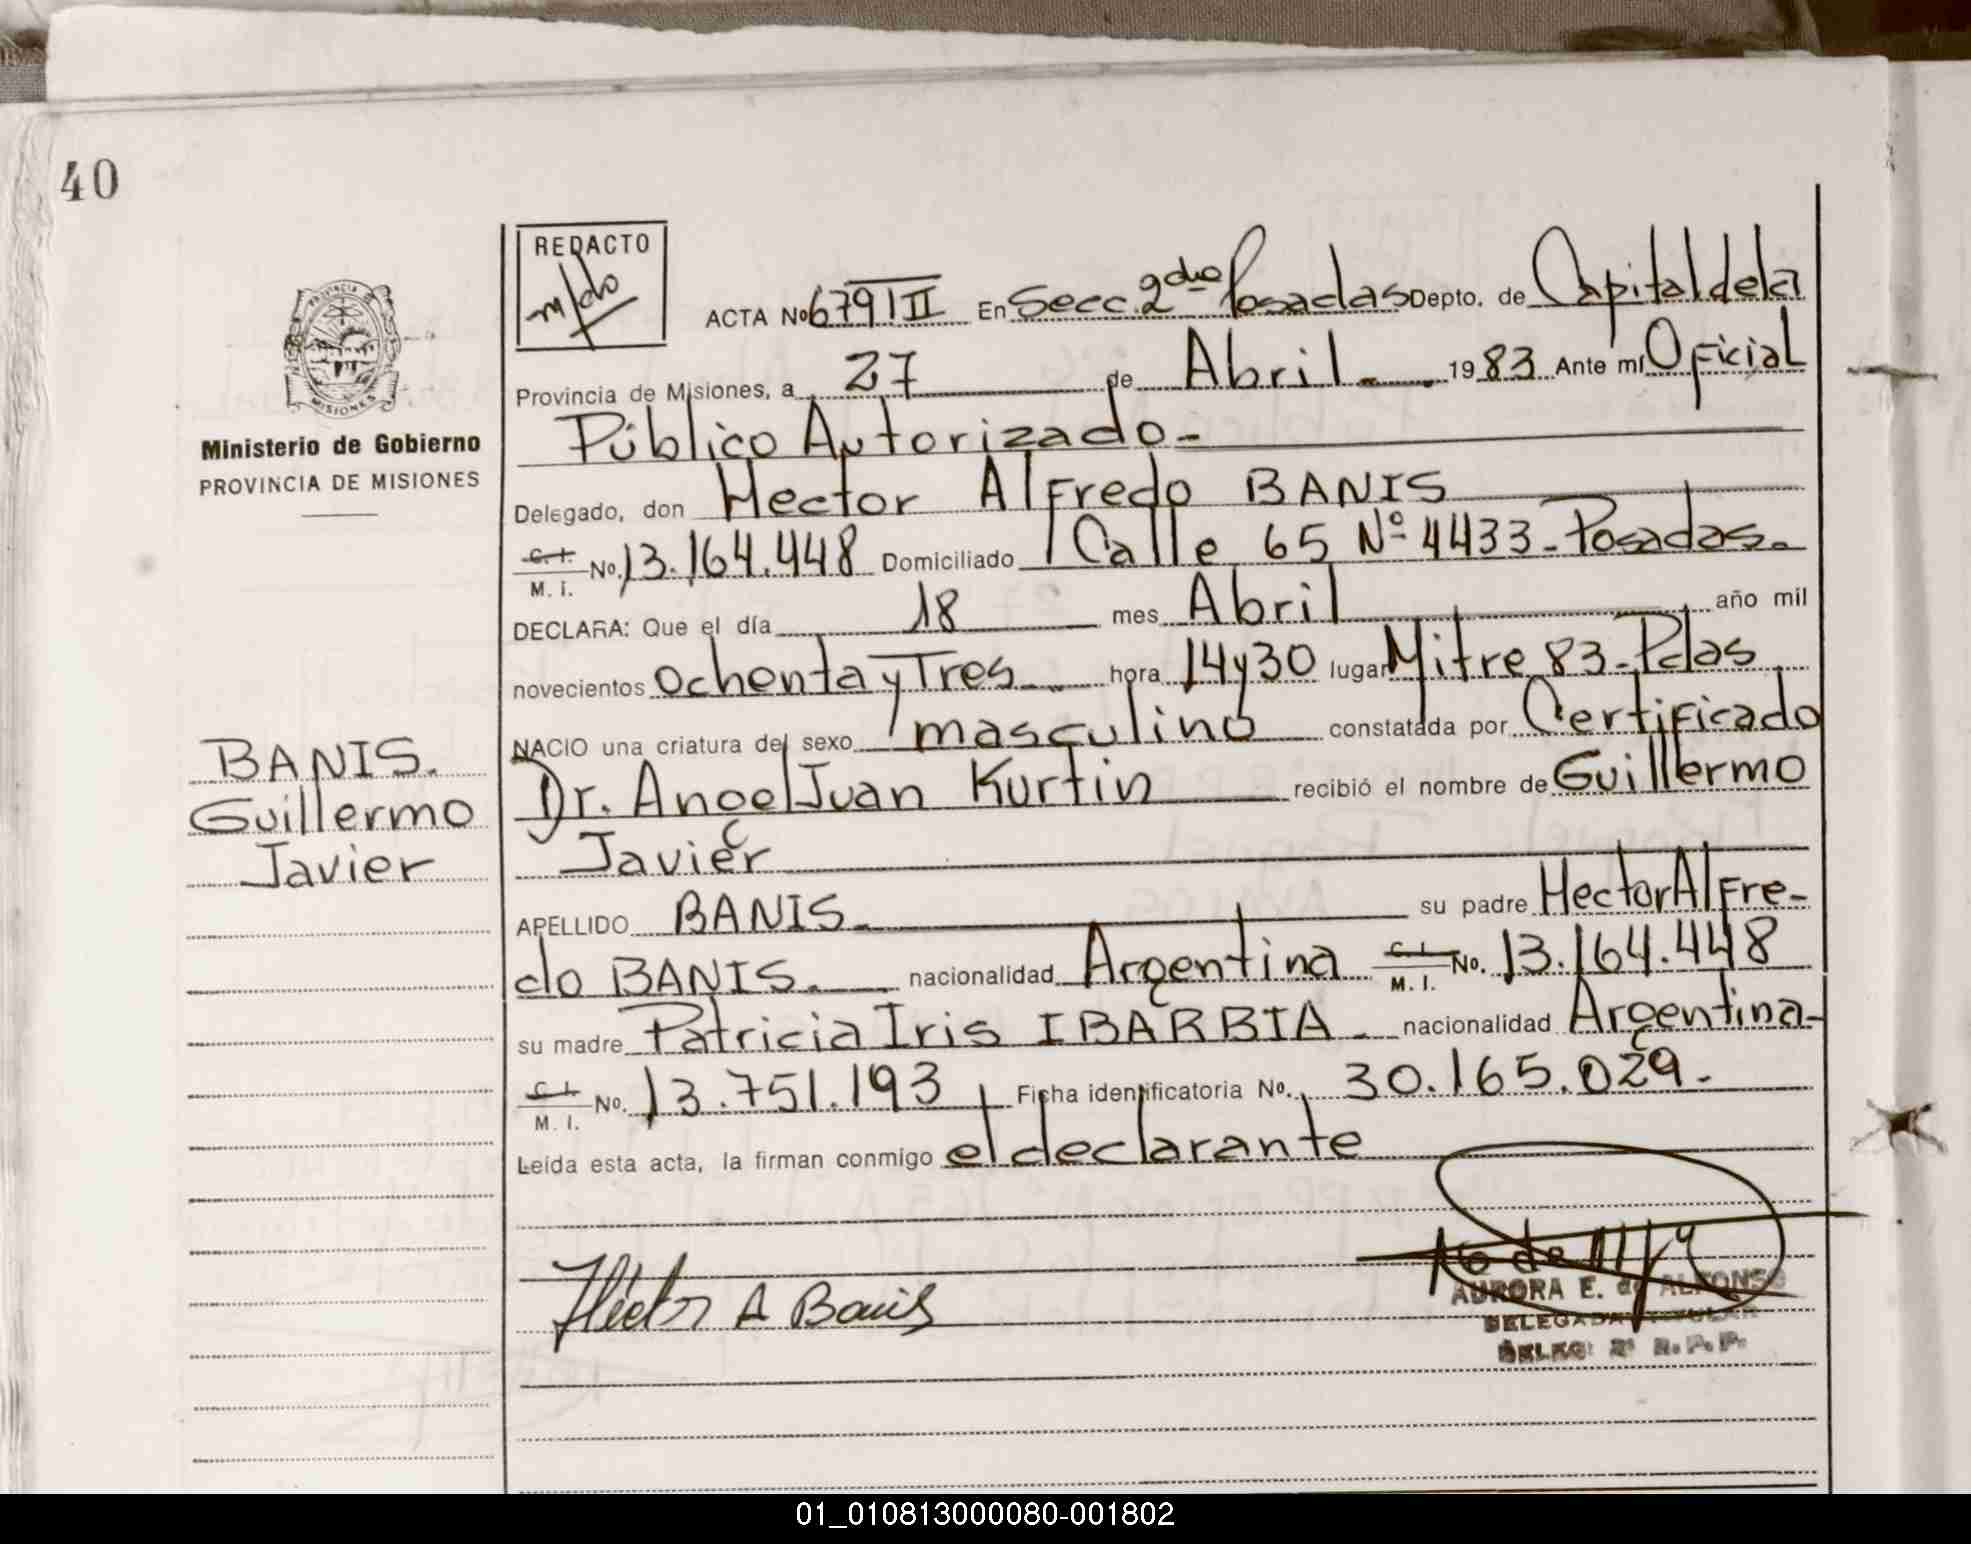 40
REDACTO
ACTA No 679 III En Secc. 2da Posadas Depto. de Capital de la
Provincia de Misiones, a 27 de Abril. 1983 Ante mí Oficial
Público Autorizado-
Ministerio de Gobierno
PROVINCIA DE MISIONES
Delegado, don Hector Alfredo BANIS
C. I. M. I. No. 13.164.448 Domiciliado Calle 65 Nº 4433-Posadas.
DECLARA: Que el día 18 mes Abril año mil
novecientos ochenta y Tres hora 14y30 lugar Mitre 83-Pdas
NACIO una criatura del sexo masculino constatada por Certificado
Dr. Angel Juan Kurtin recibió el nombre de Guillermo
Javier
BANIS.
Guillermo
Javier
APELLIDO BANIS. su padre Hector Alfre-
do BANIS. nacionalidad Argentina C. I. M. I. No. 13.164.448
su madre Patricia Iris IBARBIA. nacionalidad Argentina-
C. I. M. I. No. 13.751.193 Ficha identificatoria No. 30.165.029.
Leída esta acta, la firman conmigo el declarante
Héctor A Banis
AURORA E. de ALFONSO
DELEGADA TITULAR
DELEG. 2ª R.P.P.
PROVINCIA DE
MISIONES
01_010813000080-001802